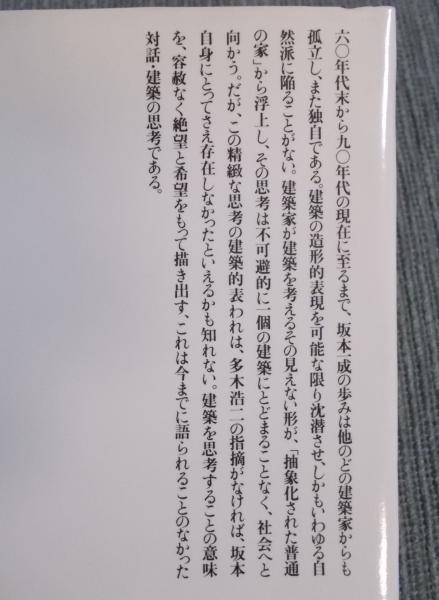 六〇年代末から九〇年代の現在に至るまで、坂本一成の歩みは他のどの建築家からも
孤立し、また独自である。建築の造形的表現を可能な限り沈潜させ、しかもいわゆる自
然派に陥ることがない。建築家が建築を考えるその見えない形が、「抽象化された普通
の家」から浮上し、その思考は不可避的に一個の建築にとどまることなく、社会へと
向かう。だが、この精緻な思考の建築的表われは、多木浩二の指摘がなければ、坂本
自身にとってさえ存在しなかったといえるかも知れない。建築を思考することの意味
を、容赦なく絶望と希望をもって描き出す、これは今までに語られることのなかった
対話・建築の思考である。